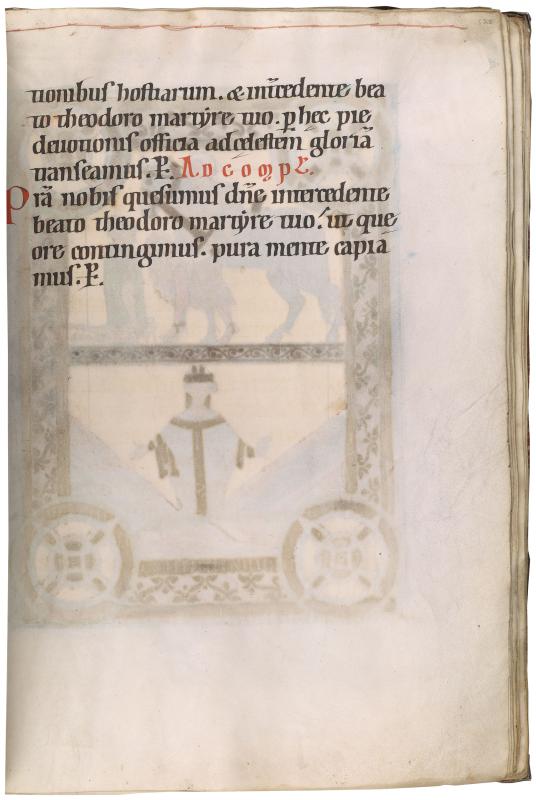 tionibus hostiarum. & īt̄cedente bea
to theodoro martyre tuo. ꝑ hec pie
deuotionis officia ad celestem gloriā
transeamus. P.  AD COMPL.
Prā nobis quesumus dn̄e intercedente
beato theodoro martyre tuo. ut que
ore contingimus. pura mente capia
mus. P.